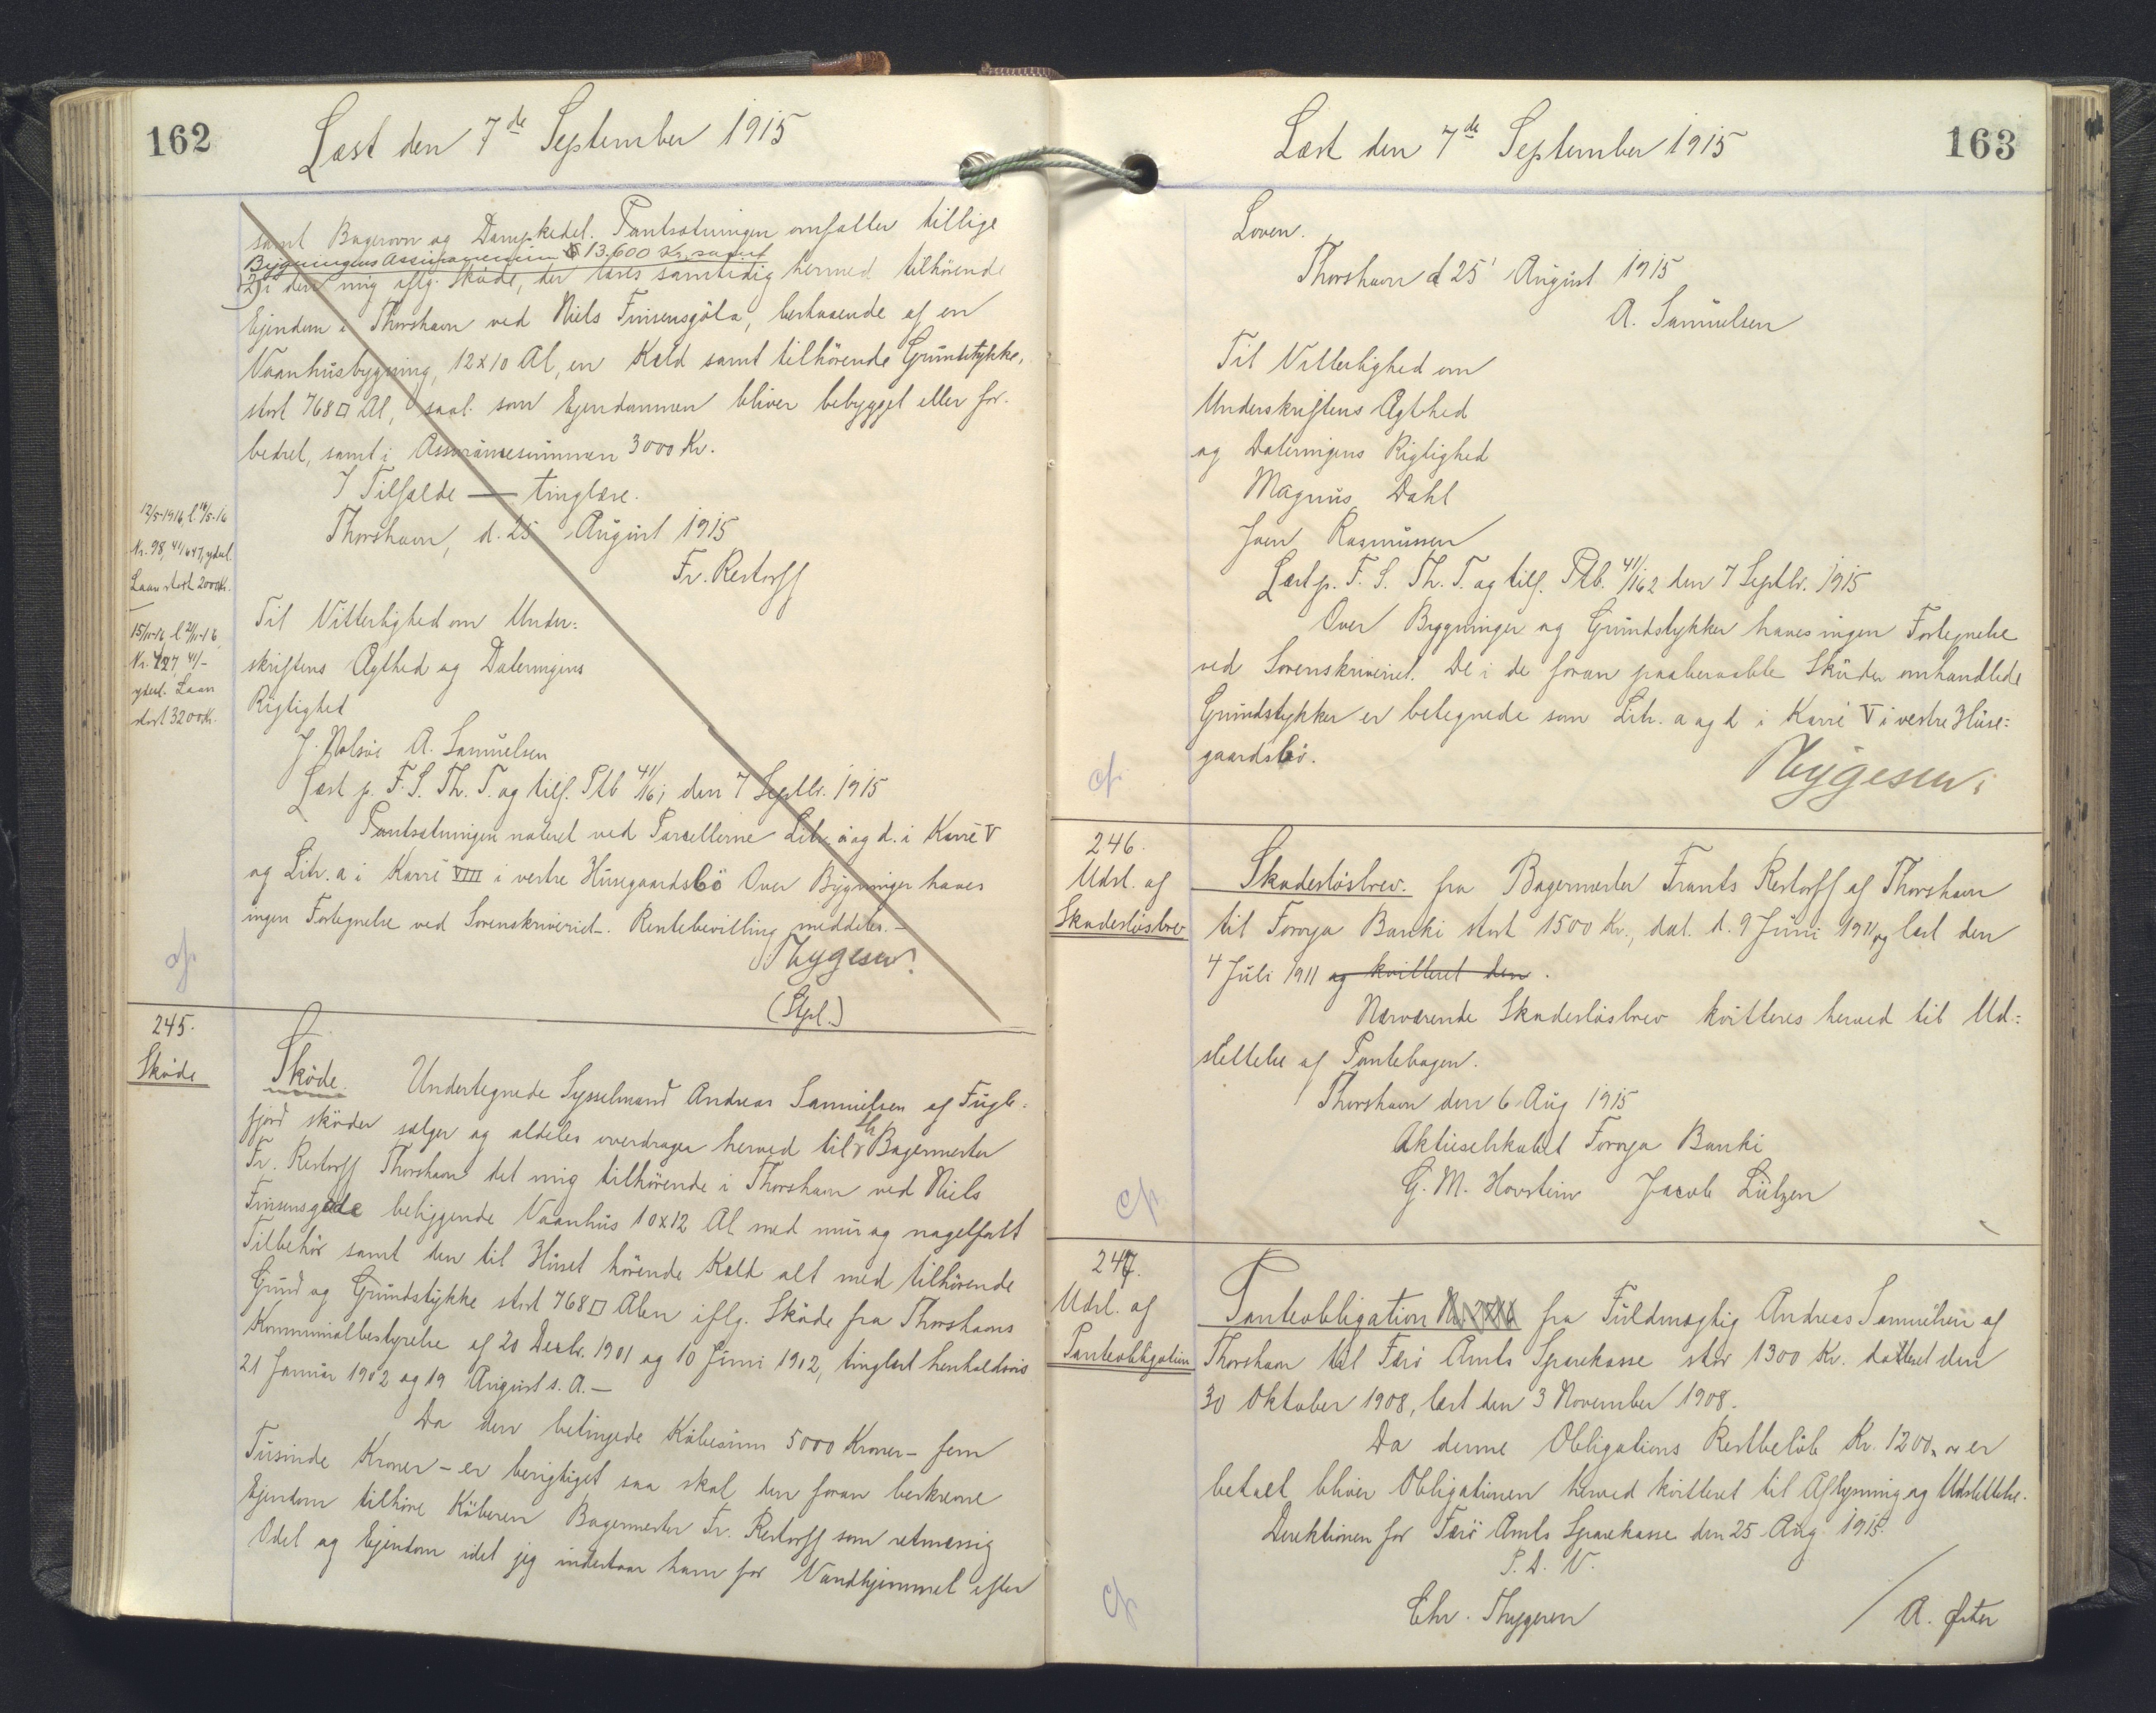 162
Læst den 7de September 1915
samt Bagerovn og Dampkedel. Pantsætningen omfatter tillige
Bygningens Assurancesum 13.600 Kr. samt
2) i den mig iflg. Sköde, der læses samtidig hermed tilhörende
Ejendom i Thorshavn ved Niels Finsensgöta, bestaaende af en
Vaanhusbygning, 12x10 Al, en Kæld samt tilhörende Grundstykke,
stort 768□ Al, saal. som Ejendommen bliver bebygget eller for-
bedret, samt i Assurancesummen 3000 Kr.
I Tilfælde — tinglæse.
Thorshavn, d. 25 August 1915
Fr. Restorff
12/5-1916, l. 16/5-16
Nr. 98, 41/647, yderl.
Laan stort 2000 Kr.
15/11-16 l 21/11-16
Nr. 727, 41/-
yderl. Laan
stort 3200 Kr.
Til Vitterlighed om Under=
skriftens Ægthed og Dateringens
Rigtighed
J. Nolsöe A. Samuelsen
Læst p. F. S. Th. T. og tilf. Ptb 41/161 den 7 Septbr. 1915
Pantsætningen noteret ved Parcellerne Litr. a og d. i Karré V
og Litr. a i Karré VIII i vestre Husegaardsbö Over Bygninger haves
ingen Fortegnelse ved Sorenskriveriet. Rentebevilling meddeles.-
Thygesen.
(Stpl.)
cf.
245.
Sköde
Sköde. Undertegnede Sysselmand Andreas Samuelsen af Fugle=
fjord sköder sælger og aldeles overdrager herved til Hr Bagermester
Fr. Restorff Thorshavn det mig tilhörende i Thorshavn ved Niels
Finsensgade beliggende Vaanhus 10x12 Al med mur og nagelfast
Tilbehör samt den til Huset hörende Kæld alt med tilhörende
Grund og Grundstykke stort 768□ Alen iflg. Sköde fra Thorshavns
Kommunalbestyrelse af 20 Decbr. 1901 og 10 Juni 1902, tinglæst henholdsvis
21 Januar 1902 og 19 August s. A.—
Da den betingede Köbesum 5000 Kroner – fem
Tusinde Kroner – er berigtiget saa skal den foran beskrevne
Ejendom tilhöre Köberen Bagermester Fr. Restorff som retmæssig
Odel og Ejendom idet jeg indestaar ham for Vandhjemmel efter
163
Læst den 7de September 1915
Loven.
Thorshavn d 25' August 1915
A. Samuelsen
Til Vitterlighed om
Underskriftens Ægthed
og Dateringens Rigtighed
Magnus Dahl
Joen Rasmussen
Læst p. F. S. Th. T. og tilf. Ptb. 41/162 den 7 Septbr. 1915
Over Bygninger og Grundstykker haves ingen Fortegnelse
ved Sorenskriveriet. De i de foran paaberaabte Sköder omhandlede
Grundstykker er betegnede som Litr. a og d i Karré V i vestre Huse=
gaardsbö.
Thygesen.
cf.
246.
Udsl. af
Skadeslösbrev
Skadeslösbrev. fra Bagermester Frants Restorff af Thorshavn
til Foroya Banki stort 1500 Kr., dat. d. 9 Juni 1911 og læst den
4 Juli 1911 og kvitteret den.
Nærværende Skadeslösbrev kvitteres herved til Ud=
slettelse af Pantebogen.
Thorshavn den 6 Aug 1915
Aktieselskabet Foroya Banki
G. M. Hovstein Jacob Lützen
cf.
247.
Udsl. af
Panteobligation
Panteobligation fra Fuldmægtig Andreas Samuelsen af
Thorshavn til Færö Amts Sparekasse stor 1300 Kr. dateret den
30 Oktober 1908, læst den 3 November 1908.
Da denne Obligations Restbelöb Kr. 1200,00 er
betalt bliver Obligationen herved kvitteret til Aflysning og Udslettelse.
Direktionen for Færö Amts Sparekasse den 25 Aug 1915.
P. D. V.
Chr. Thygesen / A. Öster
cf.